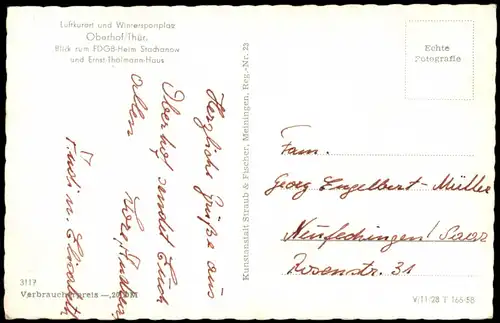 Luftkurort und Wintersportplatz
Oberhof/Thür.
Blick zum FDGB-Heim Stachanow
und Ernst-Thälmann-Haus
Echte
Fotografie
Herzliche Grüße aus
Oberhof sendet Euch
allen
Kunstanstalt Straub & Fischer, Meiningen, Reg.-Nr. 23
Fam.
Georg Engelbert-Müller
Neufechingen/Saar
Rosenstr. 31
3117
Verbraucherpreis —,20 DM
V/11/28 T 166-58